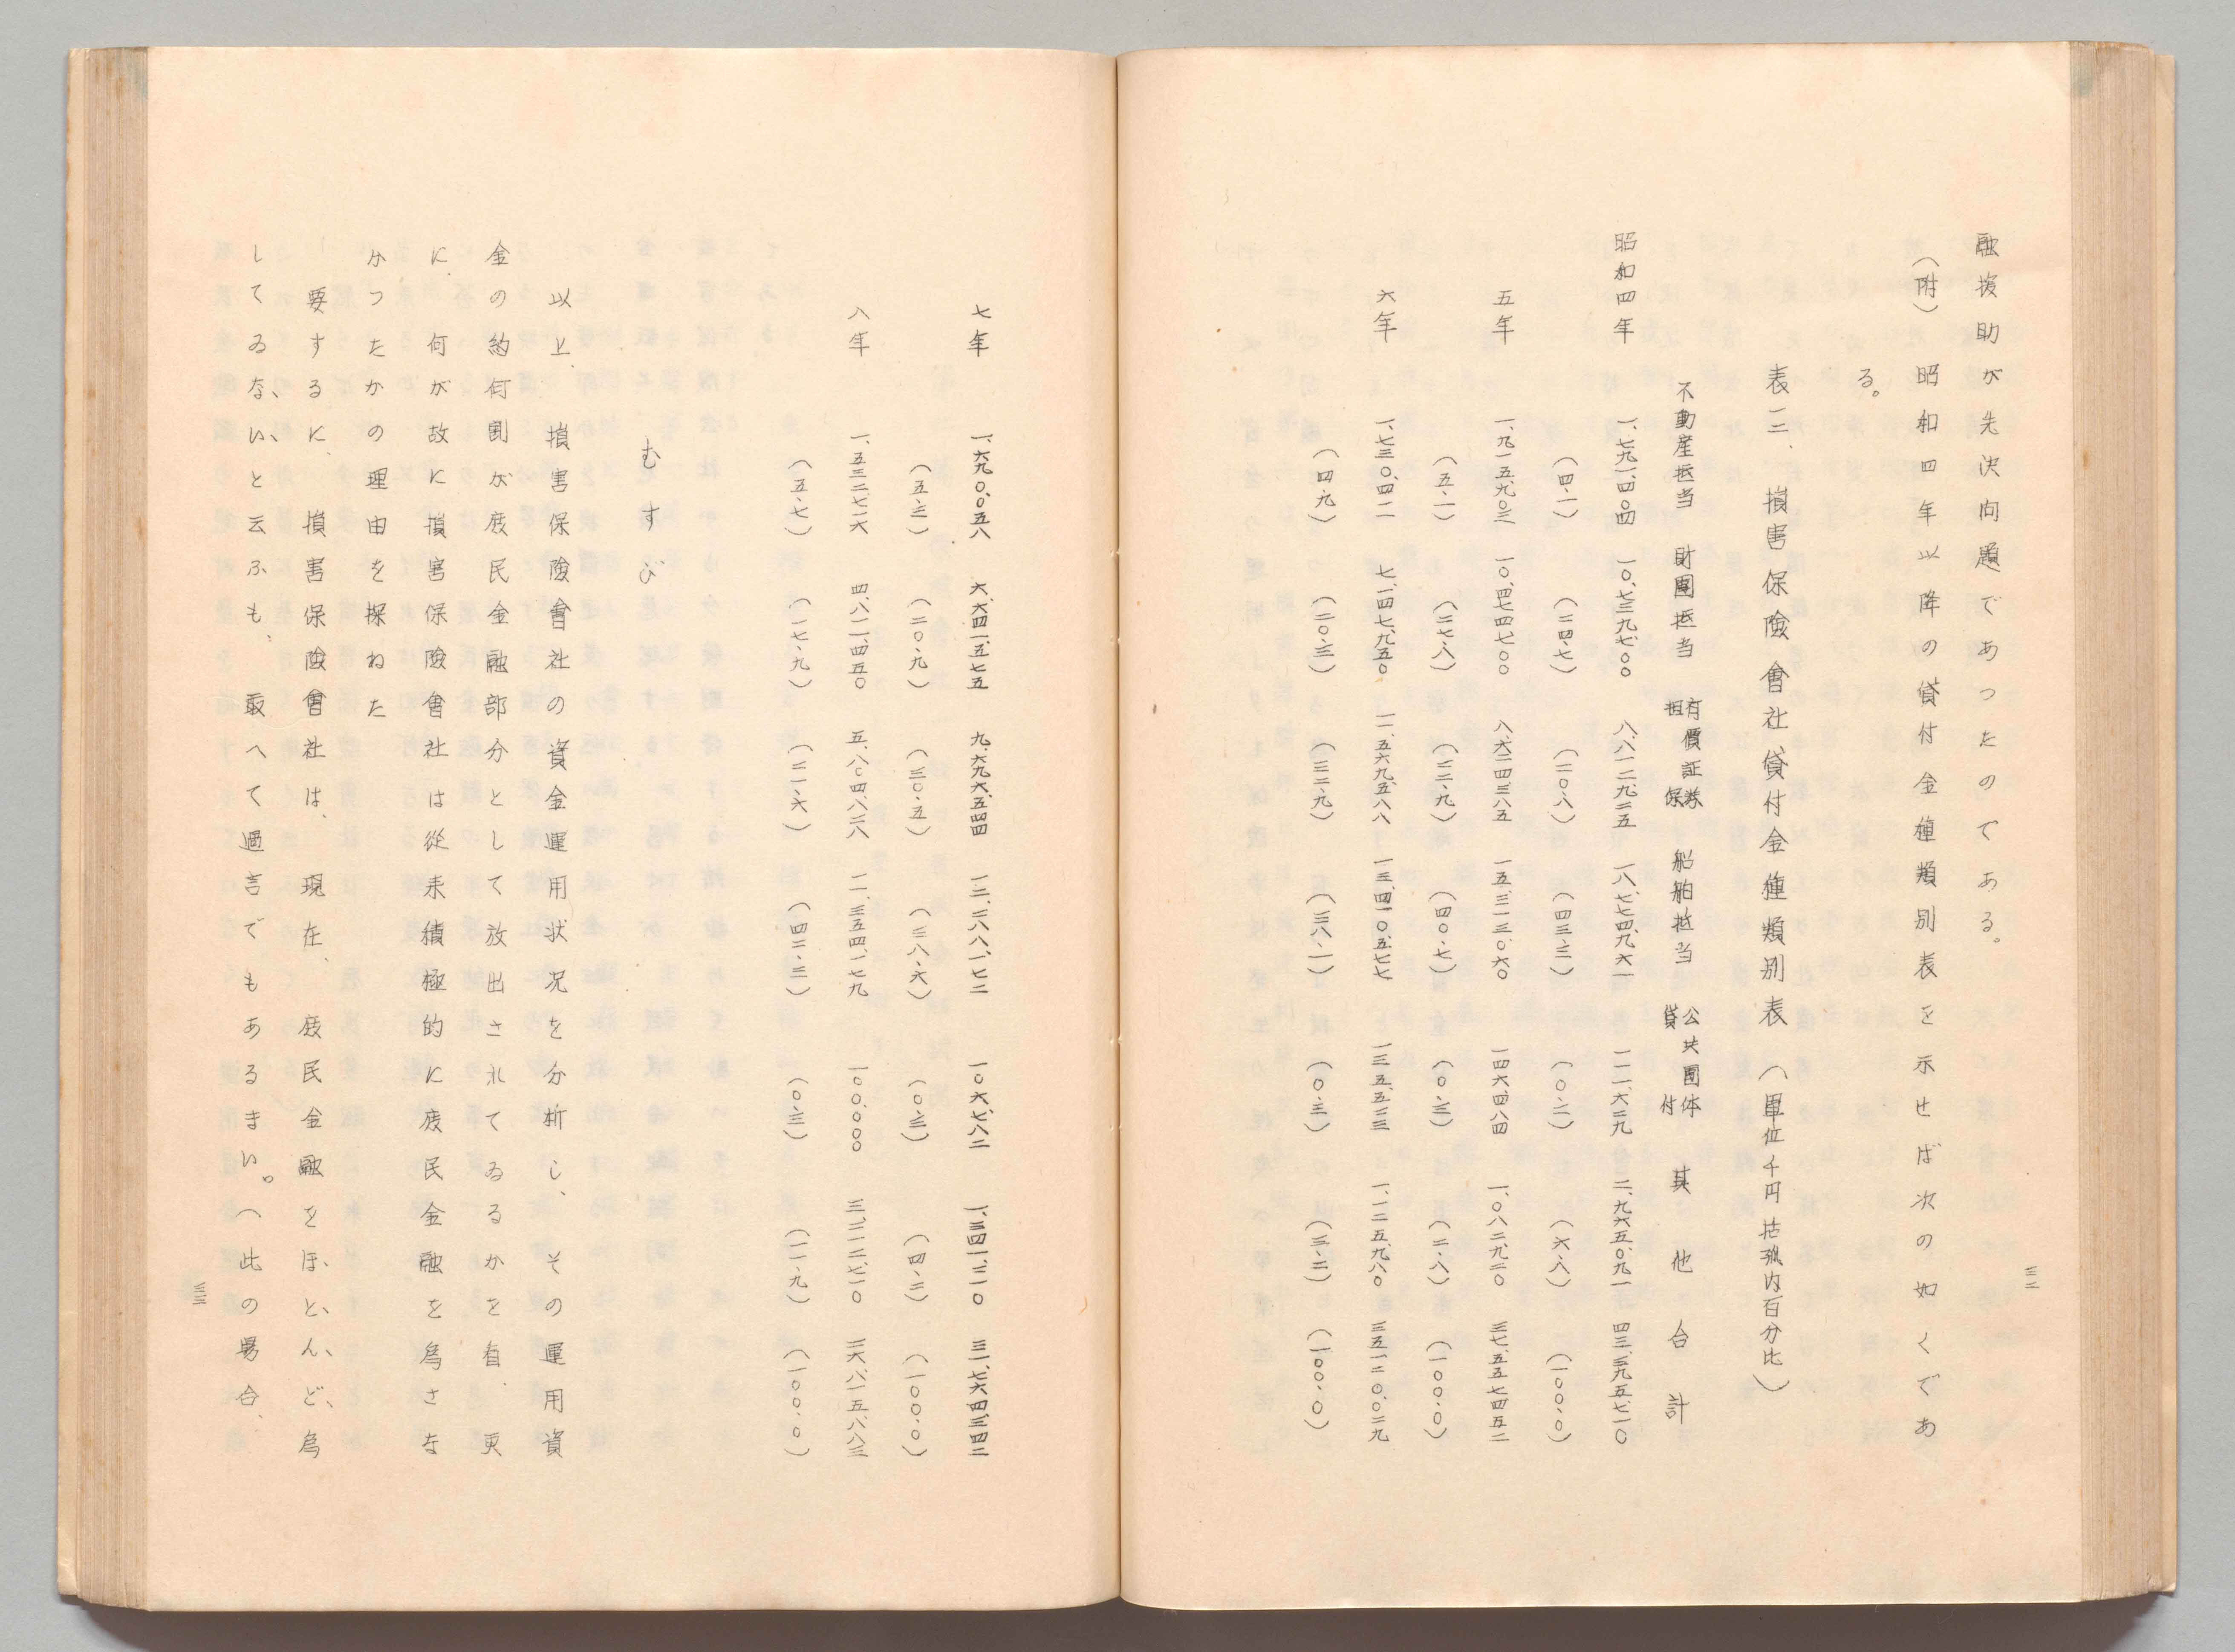 融援助が先決问題であつたのである。
(附)昭和四年以降の貸付金種類別表を示せば次の如くであ
る。
表三、損害保険會社貸付金種類別表(單位千円括弧内百分比)
不動産抵当 財團抵当 有價証券担保 船舶抵当 公共團体貸付 其他 合計
昭和四年 一、七九一、四〇四 一〇、七三九、七〇〇 八、八一二、九二五 一八、七七四、九六一 一一一、六二九 二、九六五、〇九一 四三、三九五、七一〇
(四・一) (二四・七) (二〇・八) (四三・三) (〇・二) (六・八) (一〇〇・〇)
五年 一、九一五、九〇三 一〇、四七四、七〇〇 八、六二四、三八五 一五、三一三、〇六〇 一四六、四八四 一、〇八二、九二〇 三七、五五七、四五二
(五・一) (二七・八) (二二・九) (四〇・七) (〇・三) (二・八) (一〇〇・〇)
六年 一、七三〇、四一一 七、一四七、九五〇 一一、五六九、五八八 一三、四一〇、五七七 一三五、五二三 一、一二五、九八〇 三五、一二〇、〇二九
(四・九) (二〇・三) (三二・九) (三八・一) (〇・三) (三・二) (一〇〇・〇)
三二
七年 一、六九〇、〇五八 六、六四一、五七五 九、六九六、五四四 一二、二八八、一七二 一〇六、七八二 一、三四一、二一〇 三一、七六四、三四二
(五・三) (二〇・九) (三〇・五) (三八・六) (〇・三) (四・二) (一〇〇・〇)
八年 一、五三二、七一六 四、八一一、四五〇 五、八〇四、八二八 一一、三五四、一七九 一〇〇、〇〇〇 三、二一二、七一〇 二六、八一五、八八三
(五・七) (一七・九) (二一・六) (四二・三) (〇・三) (一一・九) (一〇〇・〇)
むすび
以上、損害保険會社の資金運用状况を分析し、その運用資
金の約何割が庶民金融部分として放出されてゐるかを省、更
に、何が故に損害保険會社は從来積極的に庶民金融を為さな
かつたかの理由を探ねた
要するに、損害保険會社は、現在、庶民金融をほ、と、ん、ど、為
してゐな、い、と云ふも、敢へて過言でもあるまい。(此の場合、
三三